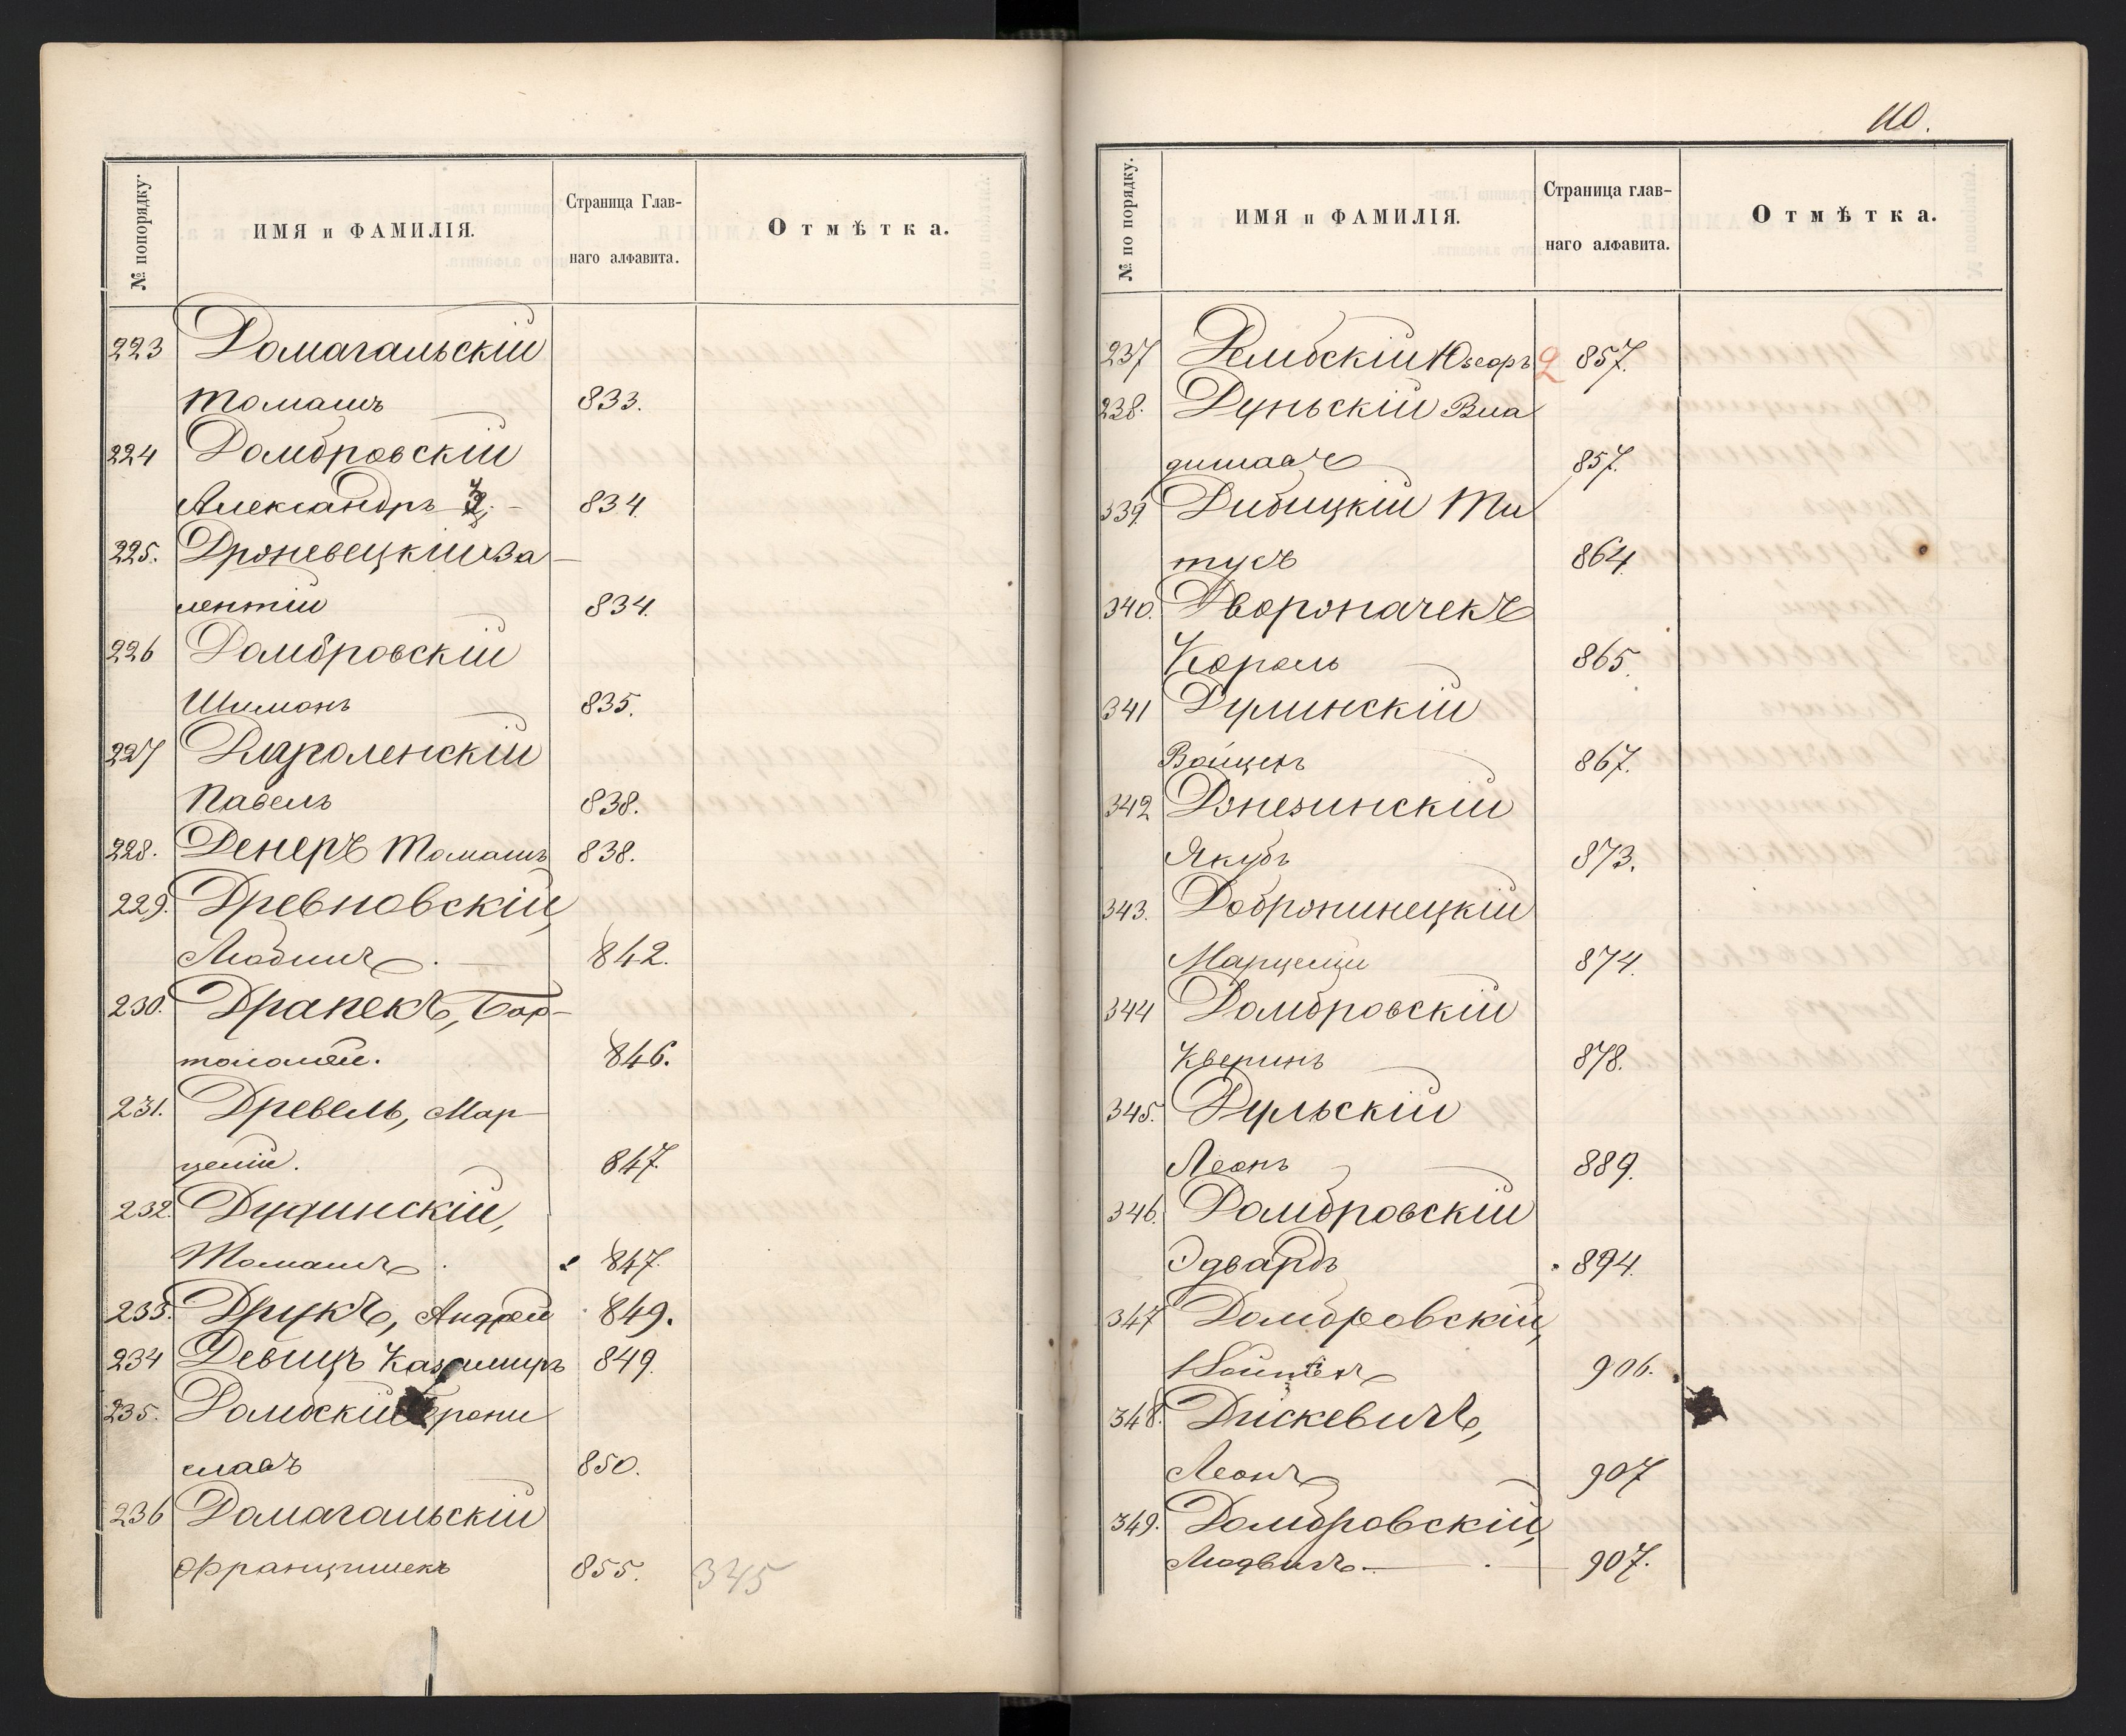 № попорядку.
ИМЯ и ФАМИЛІЯ.
Страница Глав-
наго алфавита.
Отмѣтка.
223 Домагальскій
Томашъ 833.
224 Домбровскій
Александръ 834.
225. Дроневецкій Ва-
лентій 834.
226 Домбровскій
Шимонъ 835.
227
Павелъ 838.
228. Денеръ Томашъ 838.
229. Древновскій,
842.
230. Драпекъ, Бар-
толомей. 846.
231. Древель, Мар-
целій. 847.
232. Дудинскій,
Томашъ 847.
233. Друкъ, Андрей 849.
234 Девицъ Казимиръ 849.
235. Домбскій Брони
славъ 850.
236 Домагальскій
Францишекъ 855. 345
110.
№ по порядку.
ИМЯ и ФАМИЛІЯ.
Страница глав-
наго алфавита.
Отмѣтка.
237 Дембскій Юзефъ 2 857.
238. Дуньскій Вла
диславъ 857.
339. Дибицкій Ти
тусъ 864.
340. Двороначекъ
Король 865.
341 Дулинскій
Войцехъ 867.
342
Якубъ 873.
343.
Марцелій 874.
344 Домбровскій
Кверинъ 878.
345. Дульскій
Леонъ 889.
346. Домбровскій
Эдвардъ 894.
347 Домбровскій,
906.
348. Дискевичъ,
Леонъ 907
349. Домбровскій,
Людвигъ 907.